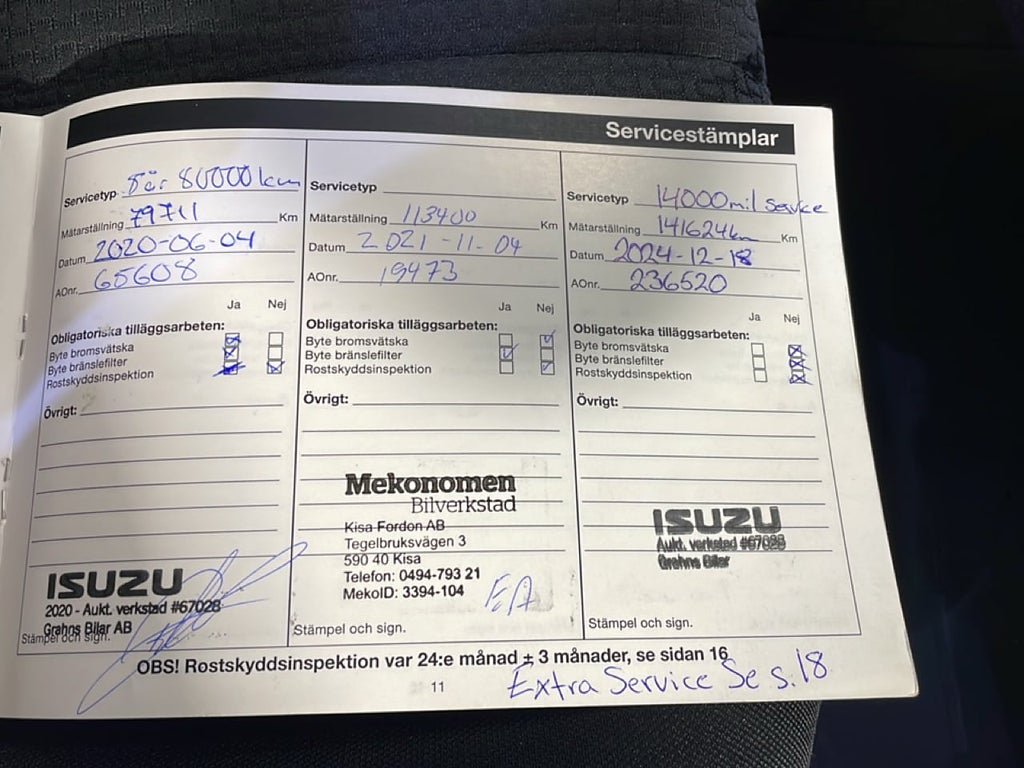 Servicestämplar
Servicetyp för 80000 km
Mätarställning 79711 Km
Datum 2020-06-04
AOnr. 65608
Ja Nej
Obligatoriska tilläggsarbeten:
Byte bromsvätska
Byte bränslefilter
Rostskyddsinspektion
Övrigt:
ISUZU
2020 - Aukt. verkstad #67028
Grahns Bilar AB
Stämpel och sign.
Servicetyp
Mätarställning 113400 Km
Datum 2021-11-04
AOnr. 19473
Ja Nej
Obligatoriska tilläggsarbeten:
Byte bromsvätska
Byte bränslefilter
Rostskyddsinspektion
Övrigt:
Mekonomen
Bilverkstad
Kisa Fordon AB
Tegelbruksvägen 3
590 40 Kisa
Telefon: 0494-793 21
MekoID: 3394-104
EA
Stämpel och sign.
Servicetyp 14000 mil Service
Mätarställning 141624km Km
Datum 2024-12-18
AOnr. 236520
Ja Nej
Obligatoriska tilläggsarbeten:
Byte bromsvätska
Byte bränslefilter
Rostskyddsinspektion
Övrigt:
ISUZU
Aukt. verkstad #67028
Grahns Bilar
Stämpel och sign.
OBS! Rostskyddsinspektion var 24:e månad ± 3 månader, se sidan 16
11
Extra Service Se s.18